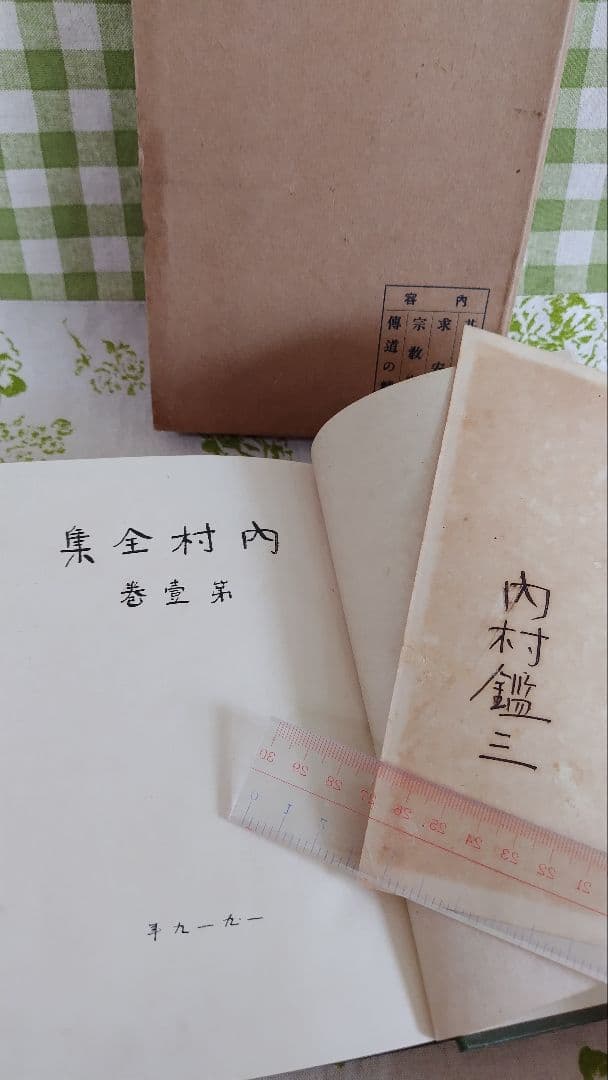 內容
求安
宗教
傳道の
內村全集
第壹卷
一九一九年
內村鑑三
30 29 28 27 26 25 24 23 22 21
0 1 2